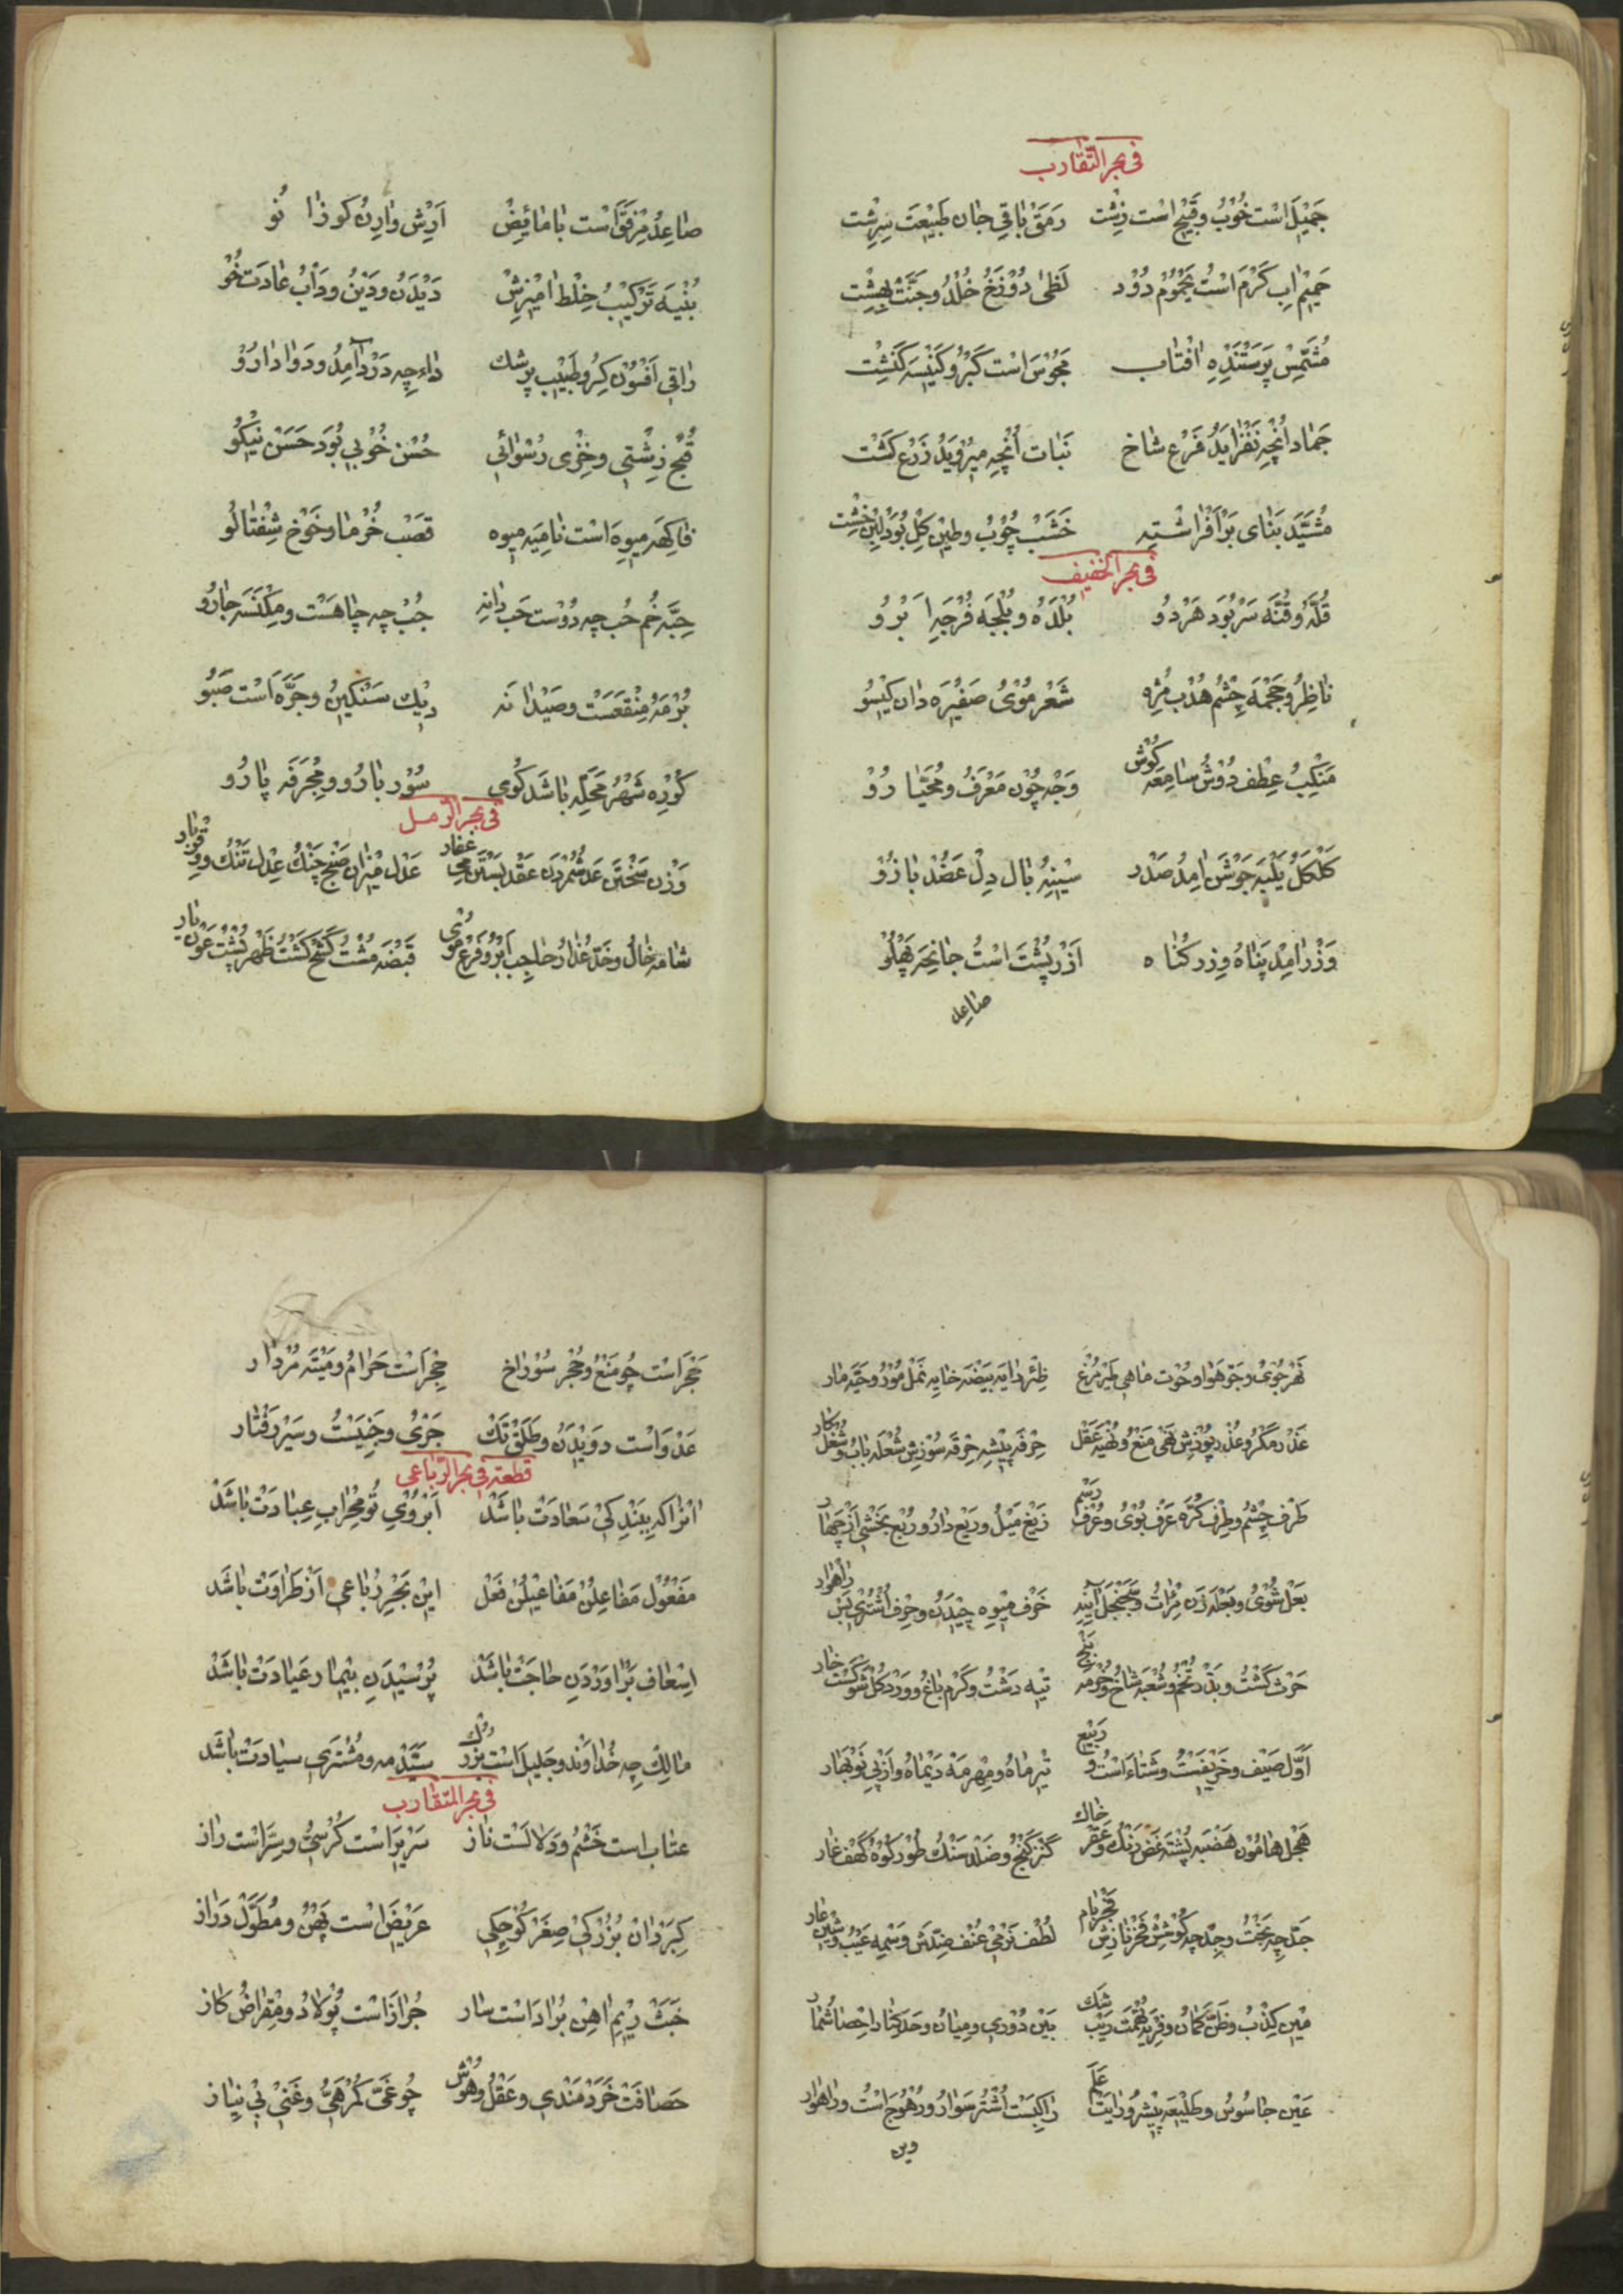 فی بحر التقارب
جمیل است خوب و قبیح است زشت رمق باقی جان طبیعت سرشت
حمیم اب کرم است یحموم دود لظی دوزخ خلد و جنت بهشت
مشمس پرستنده افتاب مجوس است کبر و کنیسه کنشت
جماد انچه نفزاید فرع شاخ نبات انچه میروید زرع کشت
مشید بنای بر افراشته خشب چوب و طین کل بود لبن خشت
فی بحر الخفیف
قله و قنه سر بود هر دو بلده و بلجه فرجه ابرو
ناظر و جحمه چشم هدب مژه شعر موی ضفیره دان کیسو
منکب عطف دوش سامعه کوش وجه چون معرف و محیا رو
کلکل یلبه جوشن امد صدر سینه بال دل عضد بازو
وزر امد پناه وزر کناه ازر پشت است جانحه پهلو
صاعد
صاعد مرفق است با مائض ارش وارن کوزا نو
بنیه ترکیب خلط امیزش دیدن و دین و داب عادت خو
راقی افسون کر و طبیب پزشك داء چه درد آمد و دوا دارو
قبح زشتی و خزی رسوائی حسن خوبی بود حسن نیکو
فاکهه میوه است نامیه میوه قصب خرما و خوخ شفتالو
حبه خم حب چه دوست حب دانه جب چه چاهست و مکنسه جارو
برمه منقعست و صیدانه دیك سنکین و جره است صبو
کوره شهر محله باشد کوی سور بارو و مجرفه پارو
فی بحر الرمل
وزن سختن عد شمردن عقد بستن عقار می عدل میزان صنج چنك عدل تنك وقر بار
شامه خال و خد عذار حاجب ابرو فرع موی قبضه مشت کشح کشت ظهر پشت عون یار
نهر جوی و جو هوا و حوت ماهی طیر مرغ ظئر دایه بیضه خایه نمل مور و حیه مار
غدر مکر و عذر پوزش نهی منع و نهیه عقل حرفه پیشه حرقه سوزش شعله باب و شغل کار
طرف چشم و طرف کره عرف بوی و عرف رسم زیغ میل و ریع دار و ربع بخشی از چهار
بعل شوی و بعله زن مرات و سجنجل آینه خرف میوه چیدن و حرف اشتری بس راهوار
حرث کشت و بذر تخم و شعبه شاخ و جرمه بیخ تیه دشت و کرم باغ و ورد کل شوکست خار
اول صیف و خریفست و شتاء است و ربیع تیر ماه و مهر مه دیماه و از پی نوبهار
هجل هامون هضبه پشته غض رنك و عقر خاك کنز کنج و صلد سنك طور کوه کهف غار
جد چه بخت و جد چه کوشش فخر نازش فجر بام لطف نرمی عنف ضدش وسمه عیب و شین عار
مین کذب و ظن کمان و فریه تهمت ریب شك بین دوری و میان و حد کنار احصا شمار
عین جاسوس و طلیعه پیشرو رایت علم راکبست اشتر سوار و هوج است و راهوار
وین
حجر است چو منع و جحر سوراخ حجر است حرام و میته مردار
عدو است دویدن و طلق تك جری و خنیست و سیر رفتار
قطعه فی بحر الرباعی
انرا که ببند کی سعادت باشد ابروی تو محراب عبادت باشد
مفعول مفاعلن مفاعیلن فعل این بحر رباعی از طراوت باشد
اسعاف بر اوردن حاجت باشد پرسیدن بیمار عیادت باشد
مالك چه خداوند و جلیل است بزرك سید مه و مشتری سیادت باشد
فی بحر المتقارب
عتاب است خشم و دلالست ناز سریر است کرسی و سر است راز
کبر دان بزرکی صغر کوچکی عریض است پهن و مطول دراز
خبث ریم اهن براد است سار جراز است پولاد و مقراض کاز
حصافت خردمندی و عقل و هوش چو غی کمرهی و غنی بی نیاز